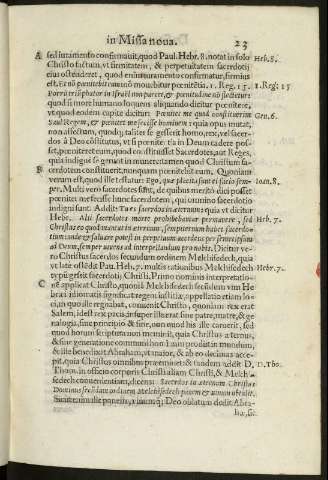 in Missa noua. 23
A sed iuramento confirmauit, quod Paul. Hebr. 8. notat in solo Heb. 8.
Christo factum, vt firmitatem, & perpetuitatem sacerdotij
eius ostenderet, quod enim iuramento confirmatur, firmius
est. Et nō pœnitebit eum nō mouebitur pœnitētia. 1. Reg. 15. 1. Reg. 15
Porrò triūphator in Israël non parcet, & pœnitudine nō flectetur:
quod si more humano loquens aliquando dicitur pœnitere,
vt quod eodem capite dicitur: Pœnitet me quod constituerim Gen. 6.
Saul Regem, & pœnitet me fecisse hominem: quia opus mutat,
non affectum, quodq; talites se gesserit homo, rex, vel sacer-
dos à Deo cōstitutus, vt si pœnitētia in Deum cadere pos-
set, pœniteret eum, quod constituisset Sacerdotes, aut Reges,
quia indigni se gerant in munere: tamen quod Christum sa-
B cerdotem constituerit, nunquam pœnitebit eum, Quoniam
verum est, quod ille testatur: Ego, quæ placita sunt ei facio sem- Ioan. 8.
per. Multi verò sacerdotes sunt, de quibus meritò dici posset
pœnitet me fecisse hunc sacerdotem, qui omnino sacerdotio
indigni sunt. Addit: Tu es sacerdos in æternum: quia vt dicitur
Hebr. Alij sacerdotes morte prohibebantur permanere, sed Heb. 7.
Christus eo quod maneat in æternum, sempiternum habet sacerdo-
tium: vnde & saluare potest in perpetuum accedens per semetipsum
ad Deum, semper viuens ad interpellandum pro nobis. Dicitur ve-
rò Christus sacerdos secundum ordinem Melchisedech, quia
vt latè ostēdit Pau. Heb. 7. multis rationibus Melchisedech Hebr. 7.
typū gessit sacerdotij, Christi. Primo nominis interpretatio-
C nē applicat Christo, quoniā Melchisedech secūdum vim He-
braici idiomatis significat regem iustitiæ, appellatio etiam lo-
ci, in quo ille regnabat, conuenit Christo, quoniam rex erat
Salem, id est rex pacis: insuper illi erat sine patre, matre, & ge-
nalogia, sine principio & fine, non quod his ille caruerit, sed
quod horum scriptura non meminit, quia Christus æternus,
& sine generatione communi non iam prodijt in mundum,
& ille benedixit Abraham, vt maior, & ab eo decimas acce-
pit, quia Christus omnibus præeminet: & tandem addit D. D. Tho.
Thom. in officio corporis Christi aliam Christi, & Melchi-
sedech conuenientiam, dicens: Sacerdos in æternum Christus
Dominus secundum ordinem Melchisedech panem & vinum obtulit.
Sicut enim ille panem, vinumq; Deo oblatum dedit Abra-
hæ, sic